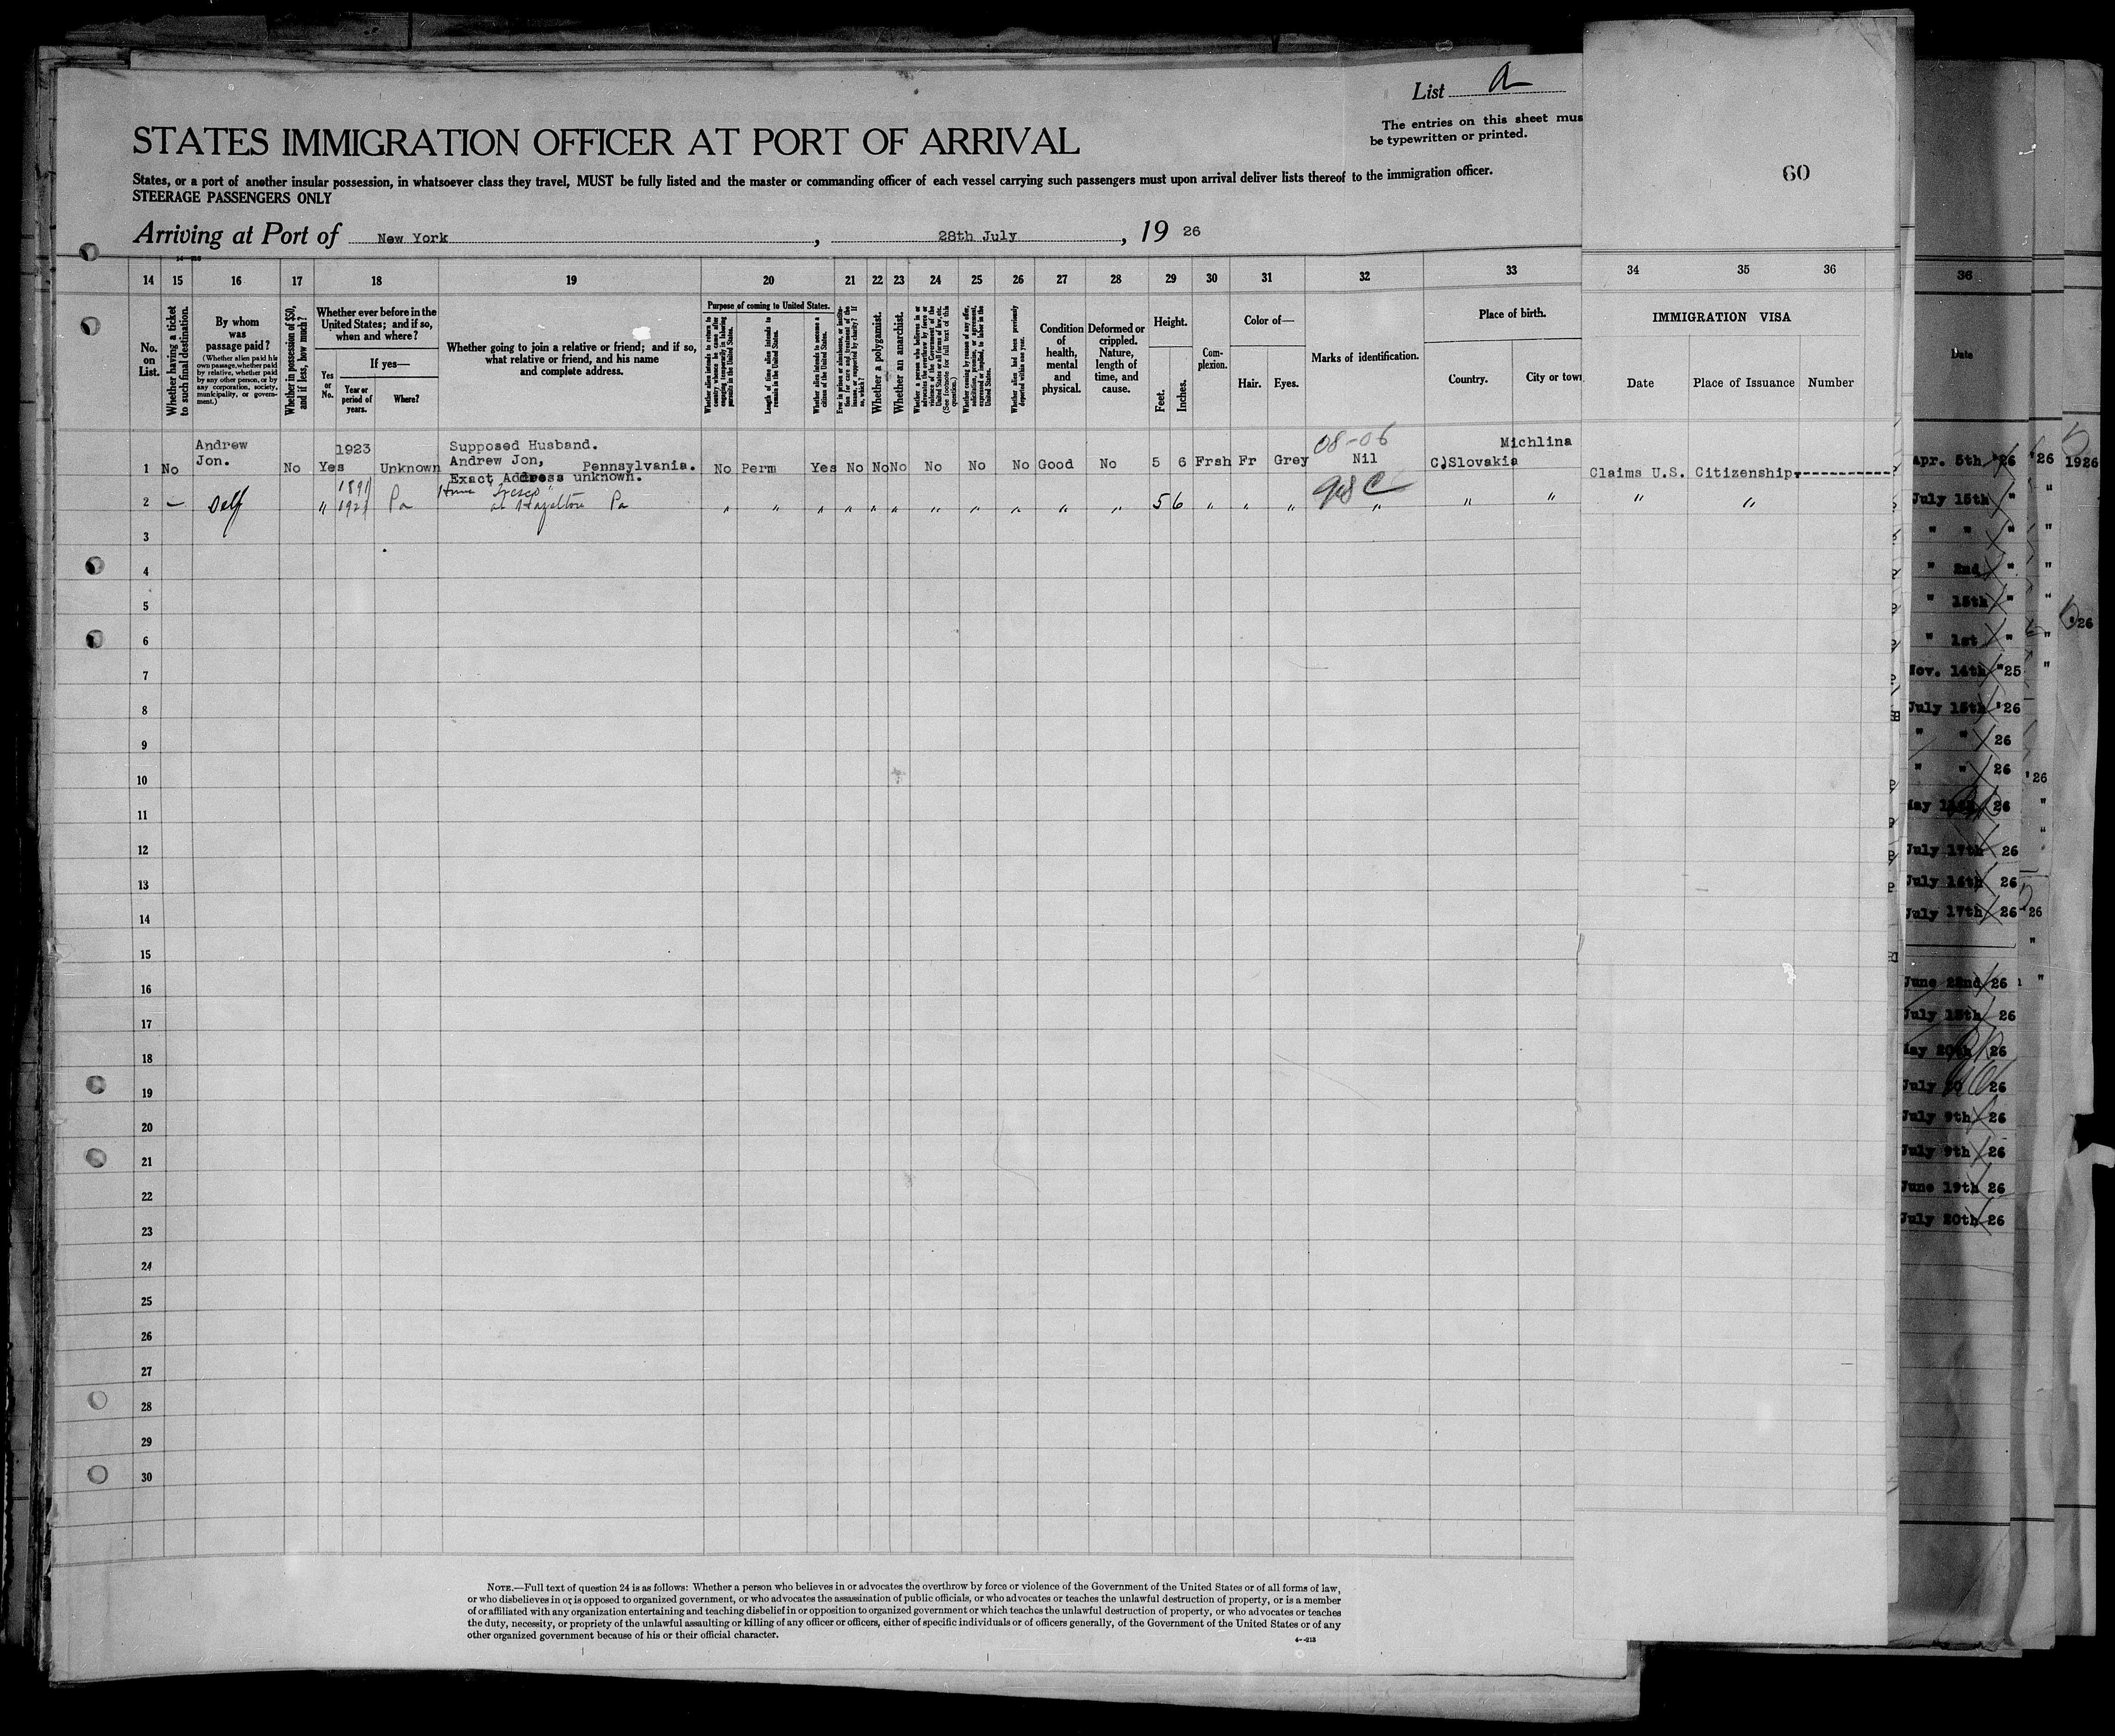 List a
The entries on this sheet mus
be typewritten or printed.
STATES IMMIGRATION OFFICER AT PORT OF ARRIVAL
60
States, or a port of another insular possession, in whatsoever class they travel, MUST be fully listed and the master or commanding officer of each vessel carrying such passengers must upon arrival deliver lists thereof to the immigration officer.
STEERAGE PASSENGERS ONLY
Arriving at Port of New York, 28th July, 19 26
14 15 16 17 18 19 20 21 22 23 24 25 26 27 28 29 30 31 32 33 34 35 36
No. on List.
Whether having a ticket to such final destination.
By whom was passage paid?
(Whether alien paid his own passage, whether paid by relative, whether paid by any other person, or by any corporation, society, municipality, or government.)
Whether in possession of $50, and if less, how much?
Whether ever before in the United States; and if so, when and where?
Yes or No.
If yes—
Year or period of years.
Where?
Whether going to join a relative or friend; and if so, what relative or friend, and his name and complete address.
Purpose of coming to United States.
Whether alien intends to return to country whence he came after engaging temporarily in laboring pursuits in the United States.
Length of time alien intends to remain in the United States.
Whether alien intends to become a citizen of the United States.
Ever in prison or almshouse, or institution for care and treatment of the insane, or supported by charity? If so, which?
Whether a polygamist.
Whether an anarchist.
Whether coming by reason of any offer, solicitation, promise, or agreement, expressed or implied, to labor in the United States.
Whether alien had been previously deported within one year.
Condition of health, mental and physical.
Deformed or crippled. Nature, length of time, and cause.
Height.
Feet.
Inches.
Complexion.
Color of—
Hair.
Eyes.
Marks of identification.
Place of birth.
Country.
City or town
IMMIGRATION VISA
Date
Place of Issuance
Number
1 No Andrew Jon. No Yes 1923 Unknown
Supposed Husband.
Andrew Jon, Pennsylvania.
Exact Address unknown.
No Perm Yes No No No No No No Good No 5 6 Frsh Fr Grey
08-06
Nil
C.Slovakia Michlina
Claims U.S. Citizenship.----------
2 — Self " 1891 1921 Pa
Home
at Hazelton Pa
" " " " " " " " " " " 5 6 " " " " " " " "
3
4
5
6
7
8
9
10
11
12
13
14
15
16
17
18
19
20
21
22
23
24
25
26
27
28
29
30
36
Date
Apr. 5th '26 '26 1926
July 15th " "
" " " "
" 2nd " "
" 15th " "
" 1st " " '26
Nov. 14th "25 "
July 15th '26
" " 26
" " 26 '26
May 26 "
July 17th 26
July 14th 26
July 17th 26 26
June 22nd 26 "
July 15th 26
May 20th 26
July 20 26
July 9th 26
July 9th 26
June 19th 26
July 20th 26
NOTE.—Full text of question 24 is as follows: Whether a person who believes in or advocates the overthrow by force or violence of the Government of the United States or of all forms of law,
or who disbelieves in or is opposed to organized government, or who advocates the assassination of public officials, or who advocates or teaches the unlawful destruction of property, or is a member
of or affiliated with any organization entertaining and teaching disbelief in or opposition to organized government or which teaches the unlawful destruction of property, or who advocates or teaches
the duty, necessity, or propriety of the unlawful assaulting or killing of any officer or officers, either of specific individuals or of officers generally, of the Government of the United States or of any
other organized government because of his or their official character.